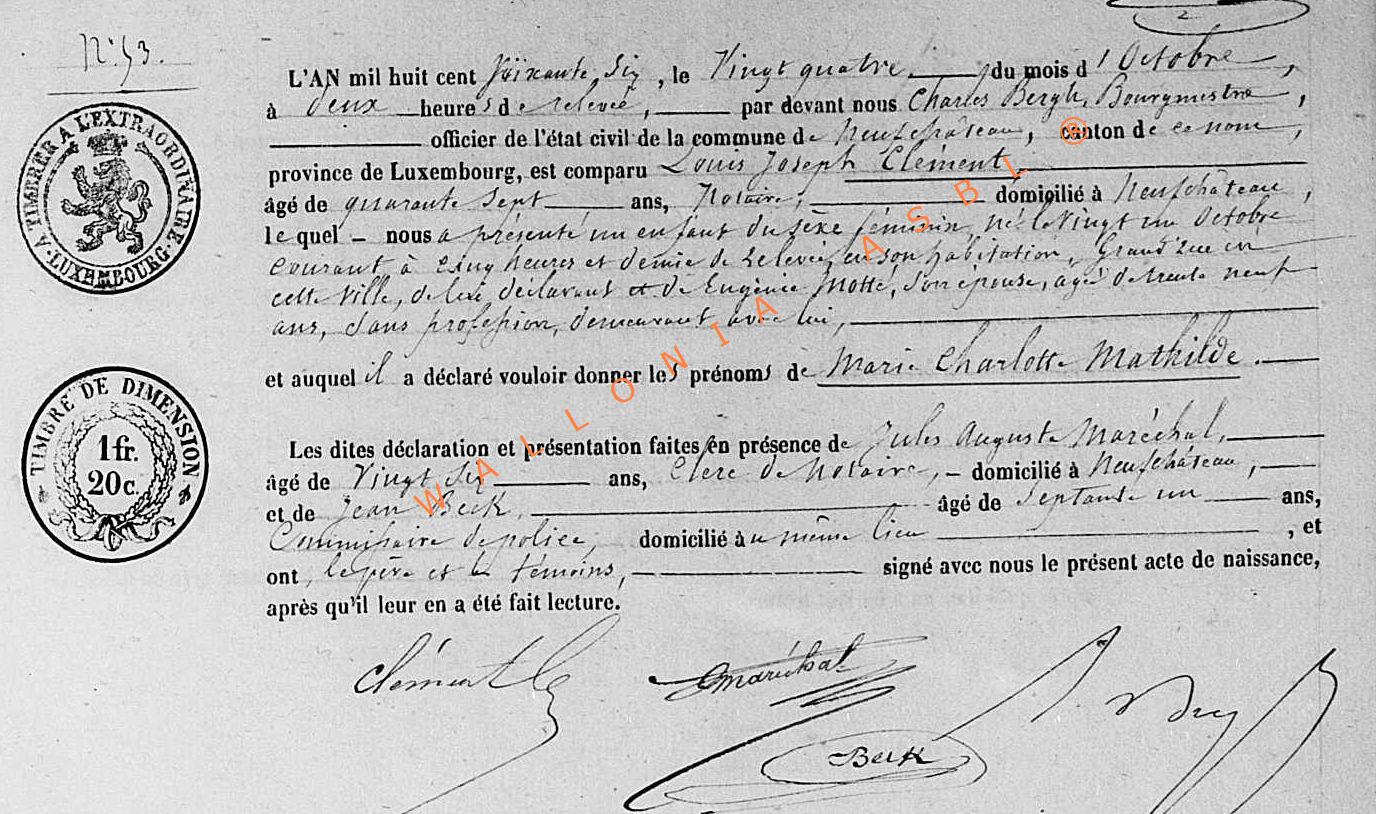 N° 53.
A TIMBRER A L'EXTRAORDINAIRE
LUXEMBOURG
L'AN mil huit cent soixante six, le Vingt quatre du mois d'Octobre,
à deux heures de relevée, par devant nous Charles Bergh, Bourgmestre,
officier de l'état civil de la commune de Neufchâteau, canton de ce nom,
province de Luxembourg, est comparu Louis Joseph Clément,
âgé de quarante sept ans, Notaire, domicilié à Neufchâteau,
lequel nous a présenté un enfant du sèxe féminin, né le Vingt un Octobre
courant à cinq heures et demie de relevée, en son habitation, Grand'rue en
cette Ville, de lui déclarant et de Eugénie Motté, son épouse, agée de trente neuf
ans, sans profession, demeurant avec lui,
et auquel il a déclaré vouloir donner les prénoms de Marie Charlotte Mathilde.
TIMBRE DE DIMENSION
1 fr.
20 c.
Les dites déclaration et présentation faites en présence de Jules Auguste Maréchal,
âgé de Vingt Six ans, Clerc de Notaire, domicilié à Neufchâteau,
et de Jean Beck, âgé de septante un ans,
Commissaire de police, domicilié au même lieu, et
ont, le père et les témoins, signé avec nous le présent acte de naissance,
après qu'il leur en a été fait lecture.
Clément
Maréchal
Beck
WALLONIA ASBL ®